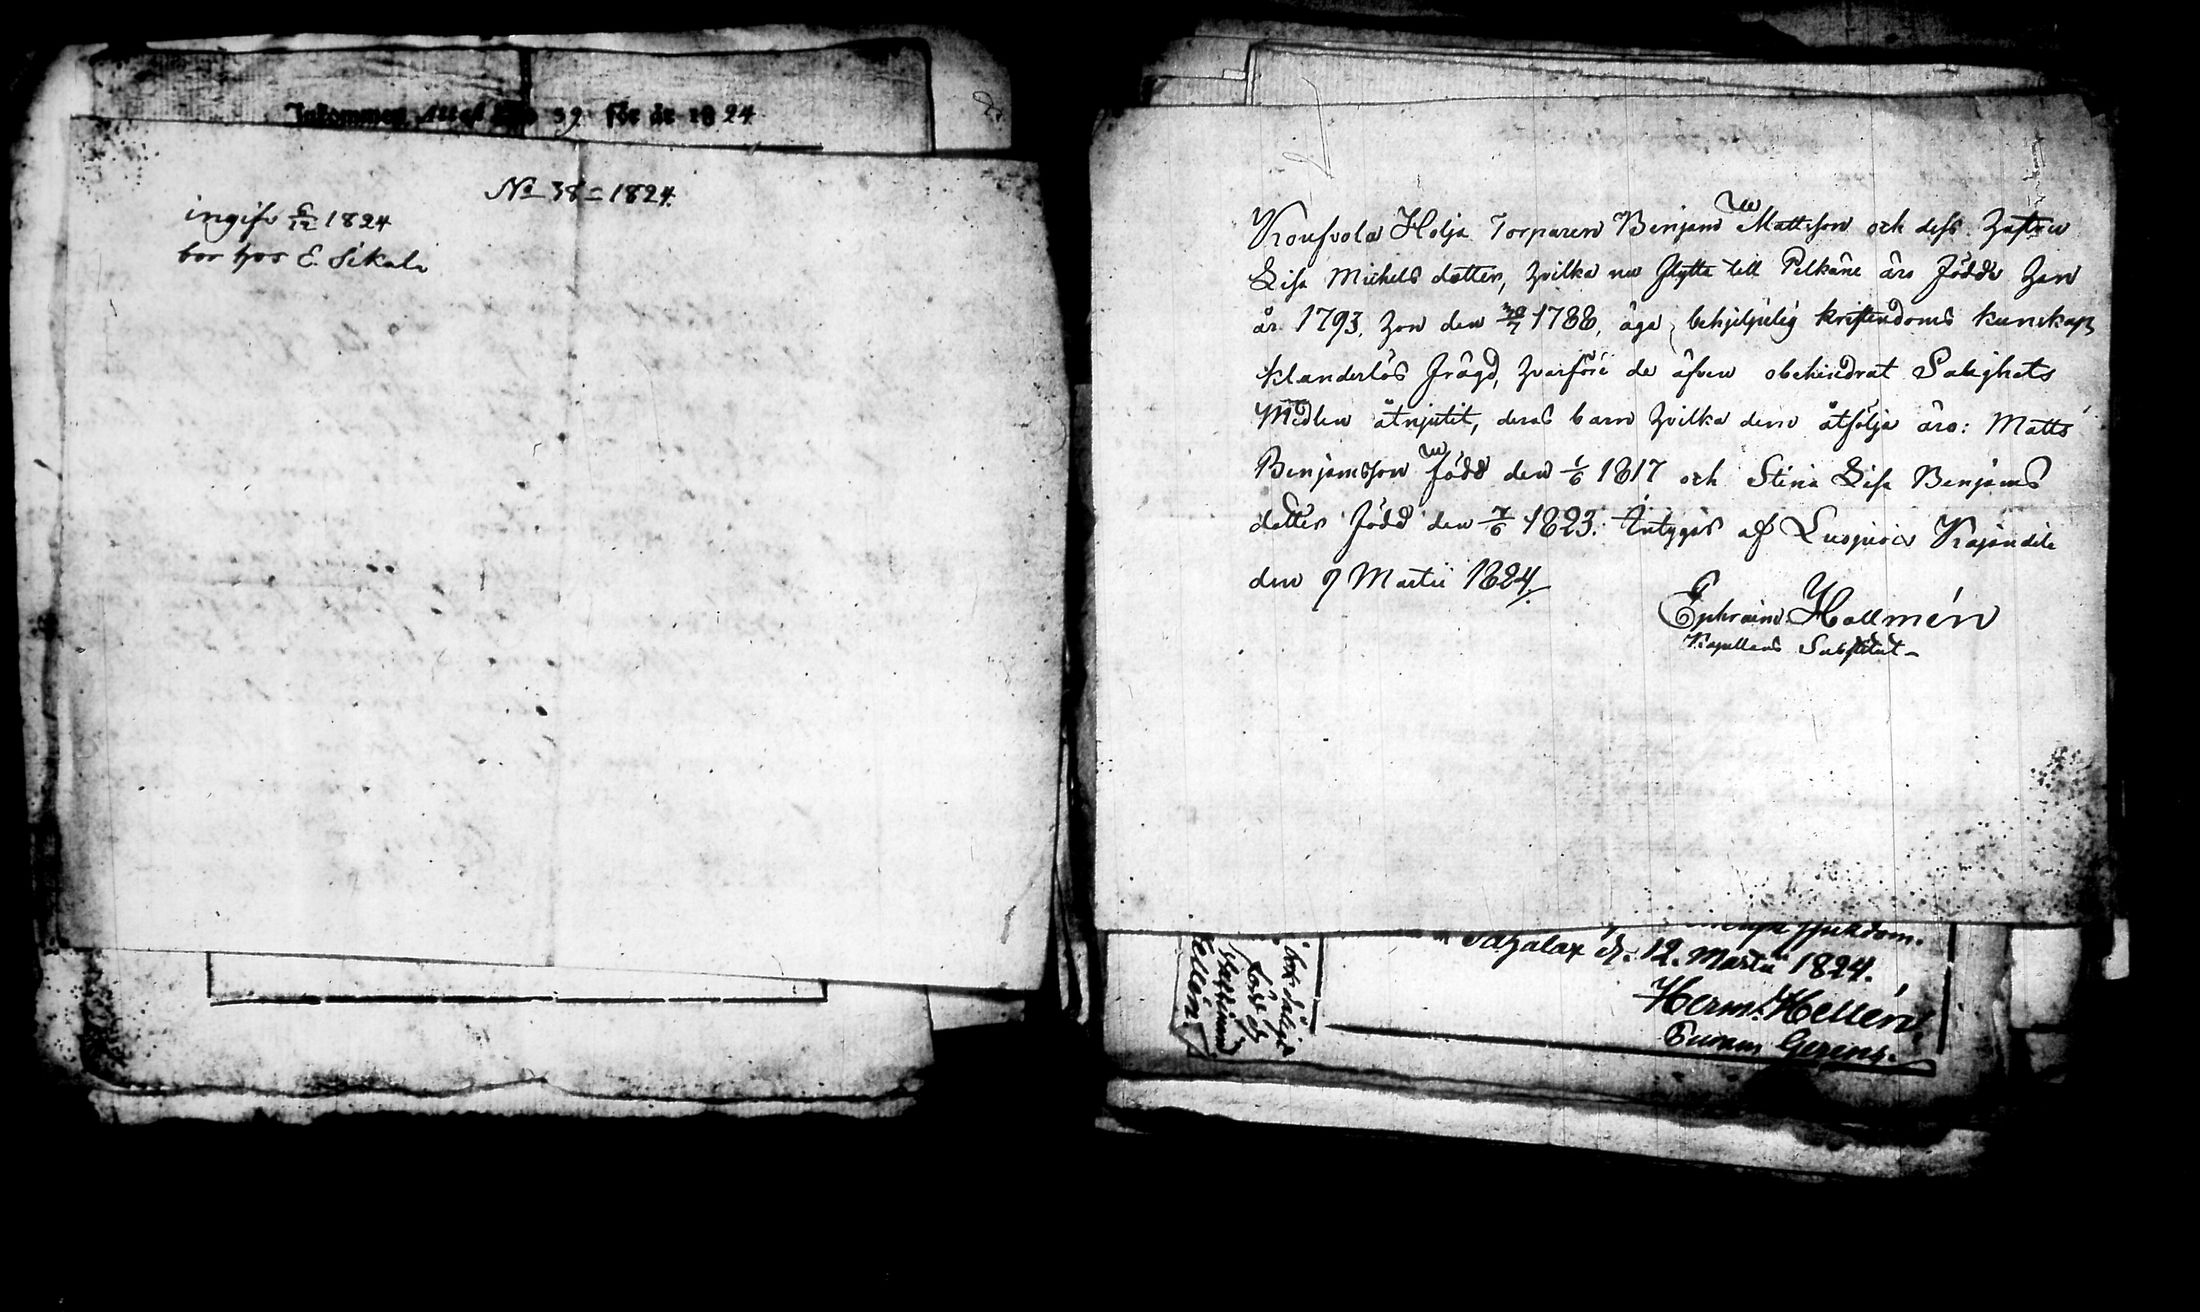 Inkommen Attest No 39 för år 1824
No 38 = 1824.
ingifv 6/12 1824
bor hos E. Sikala
KouSvola Holja Torparen Benjam Mattsson och dess hustru
Lisa Michels dotter, hvilka nu flytta till Pelkäne äro födde han
år 1793, hon den 30/7 1788, äga behjelpelig kristendoms kunskap,
klanderlös frägd, hvarföre de äfven obehindrat Salighets
Medlen åtnjutit, deras barn hvilka dem åtfölja äro: Matts
Benjamsson född den 1/6 1817 och Stina Lisa Benjams
dotter född den 7/6 1823. Intygas af Luopiois Kajandila
den 9 Martii 1824
Ephraim Hallmén
Kapellans Substitut
sjukdom.
d. 12. Martii 1824.
Herm. Hellén
Gerens.